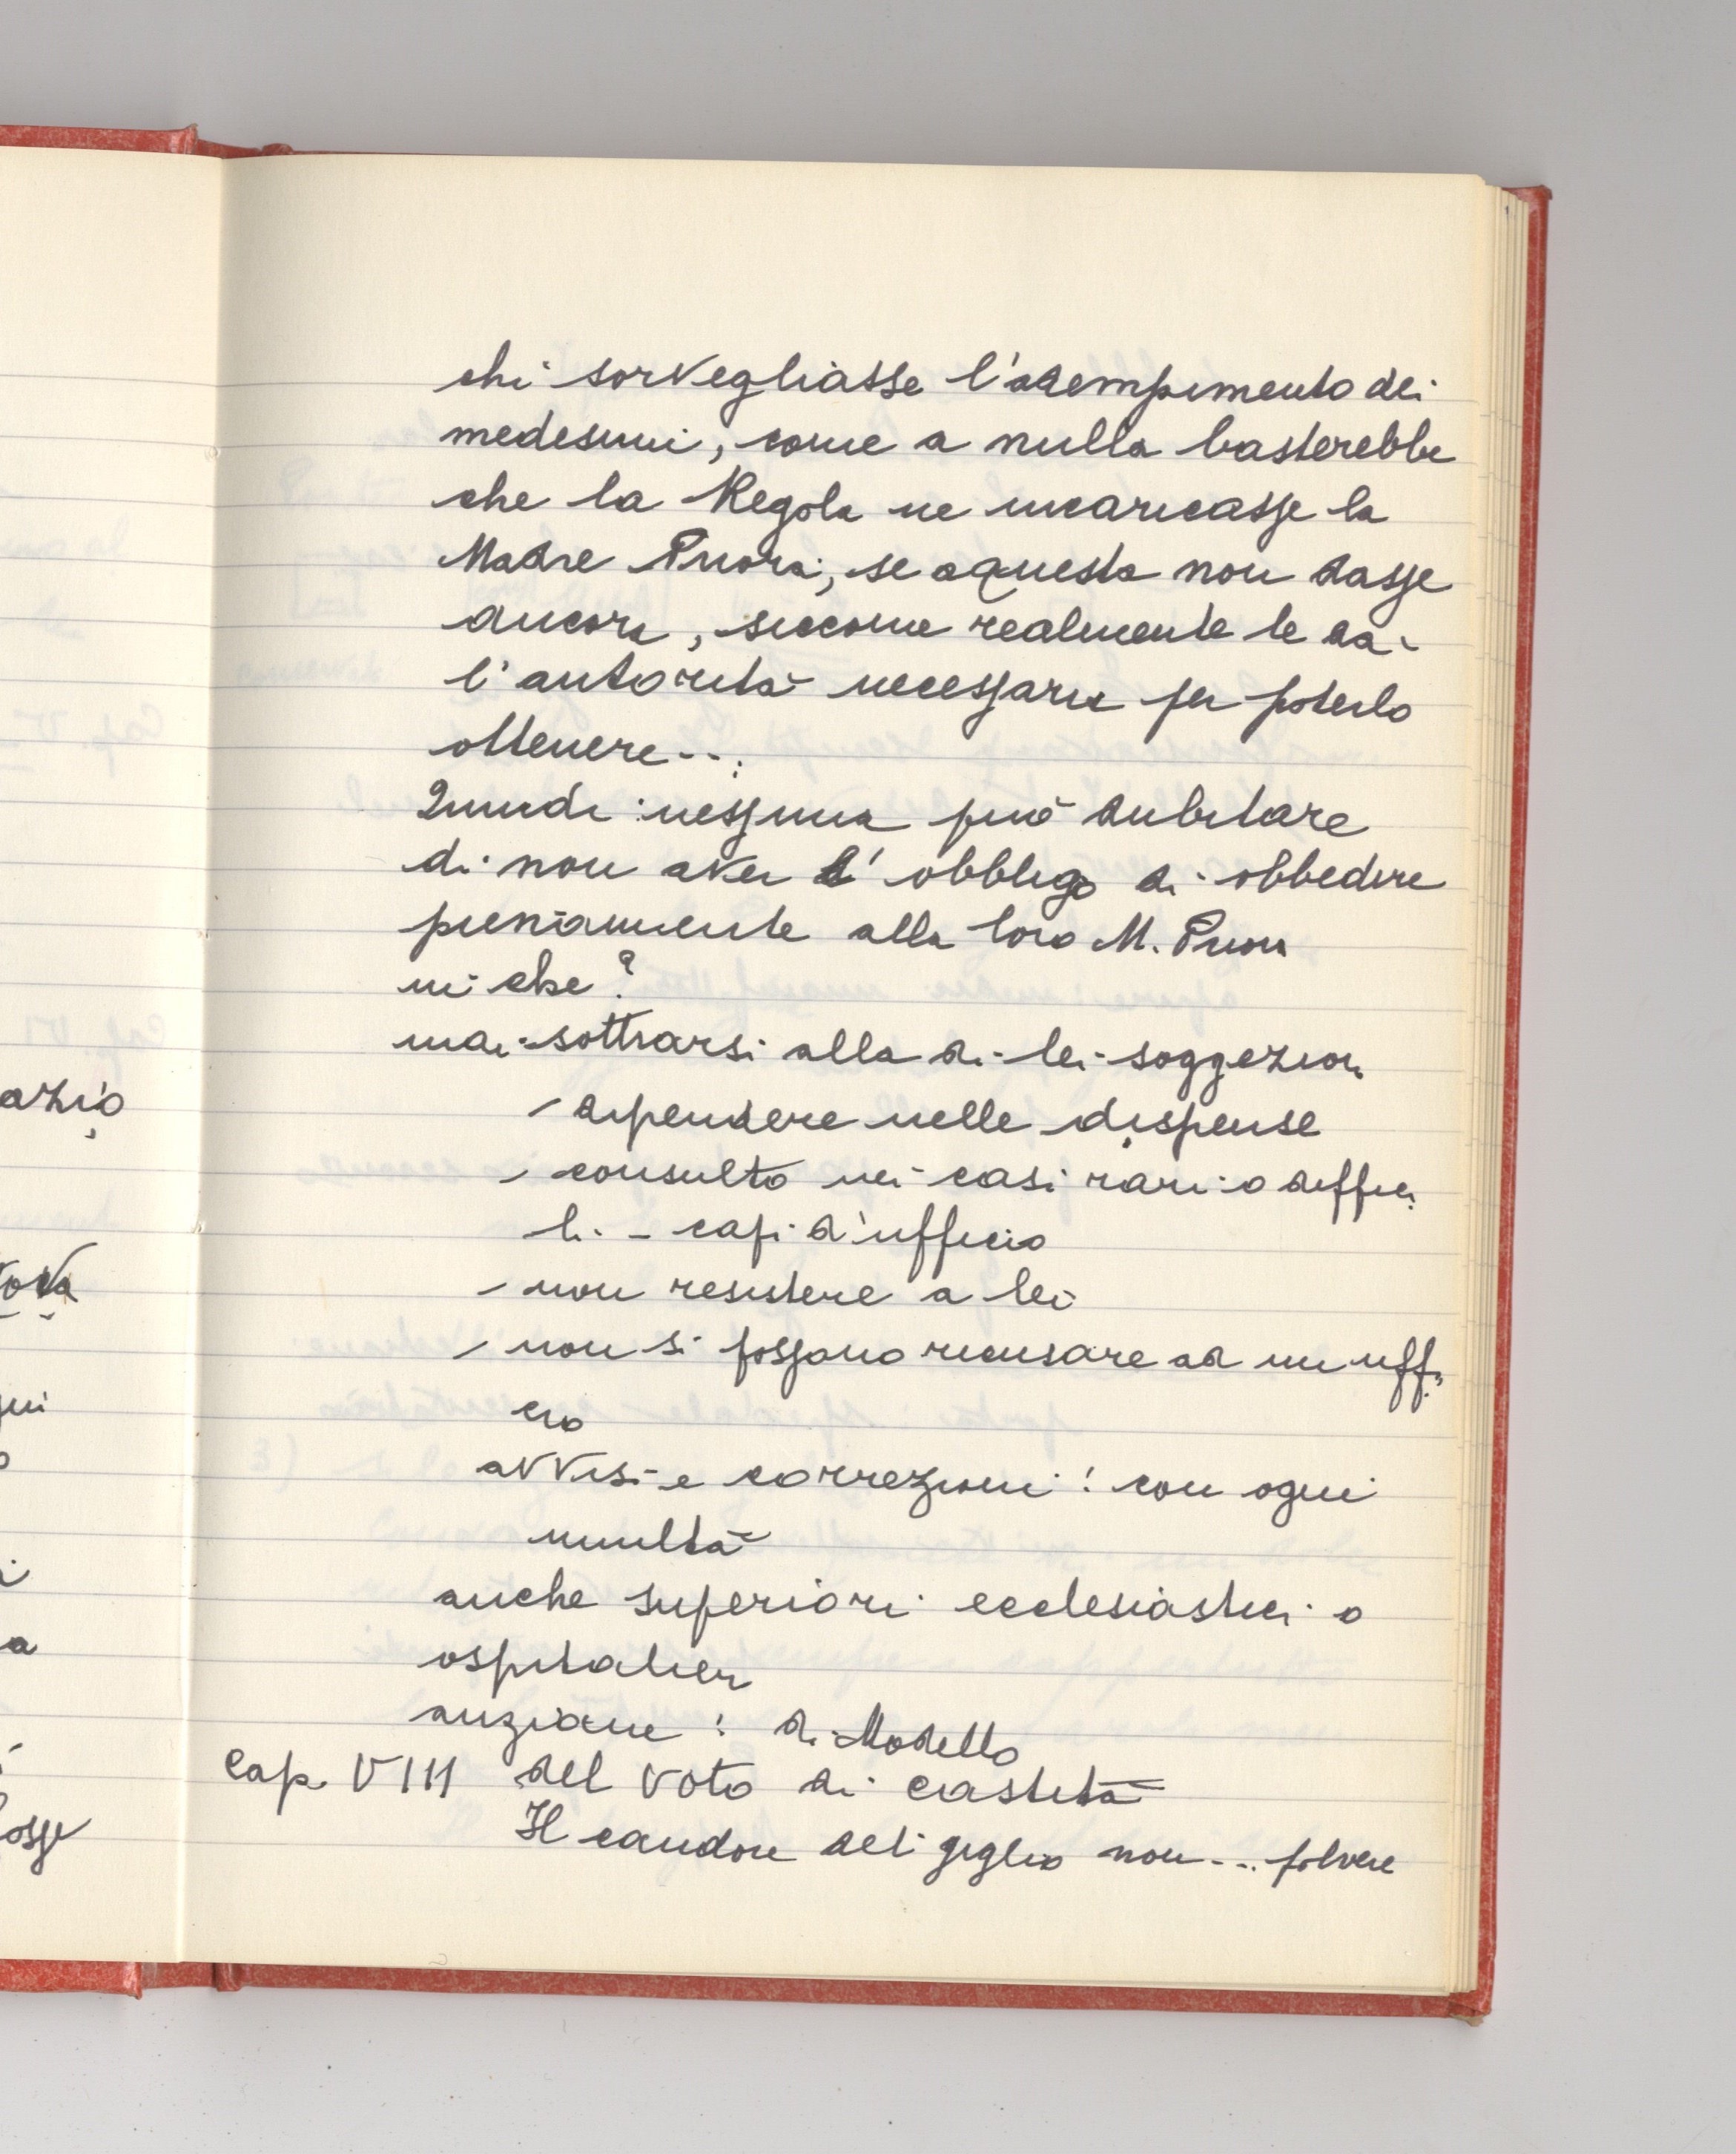 chi sorvegliasse l'adempimento dei
medesimi, come a nulla basterebbe
che la Regola ne incaricasse la
Madre Priora, se a questa non dasse
ancora, siccome realmente le dà
l'autorità necessaria per poterlo
ottenere...
Quindi: nessuna può dubitare
di non aver l'obbligo di obbedire
pienamente alla loro M. Priora
in che?
mai sottrarsi alla di lei soggezion
- dipendere nelle dispense
- consulto nei casi rari o diffici
li - capi d'ufficio
- non resistere a lei
- non si possano ricusare ad un uffi
cio
avvisi e correzioni: con ogni
umiltà
anche superiori ecclesiastici o
ospitalieri
anziane: di Modello
Cap. VIII del voto di castità
Il candore del giglio non... polvere
azio
tova
gui
o
i
a
fosse